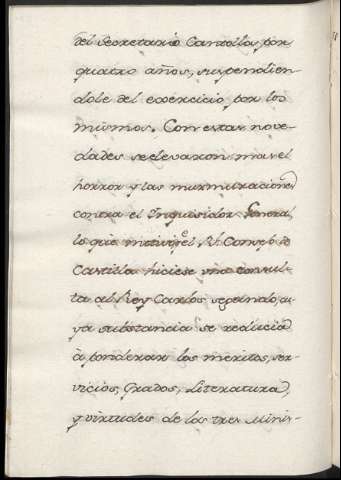 del Secretario Cantolla, por
quatro años, suspendien-
dole del exercicio, por los
mismos. Con estas nove-
dades se elevaron mas el
horror y las murmuraciones
contra el Inquisidor General,
lo que motivó, el Rl. Consejo de
Castilla hiciese una consul-
ta al Rey Carlos segundo, cu-
ya substancia se reducia
à ponderar los meritos, ser-
vicios, Grados, Literatura,
y virtudes de los tres Minis-